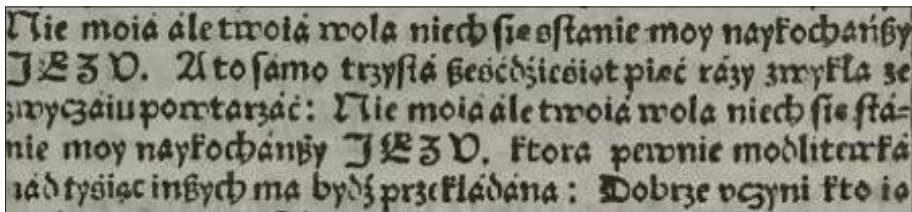 Nie moiá ále twoiá wola niech śię ostánie moy naykochańszy
JEZV. A to sámo trzystá sześćdźieśiąt pięć rázy zwykłá ze
zwyczáiu powtarzáć: Nie moiá ále twoiá wola niech śię stá=
nie moy naykochánszy JEZV. ktora pewnie modlitewká
nád tyśiąc inszych ma bydź przekłádána: Dobrze vczyni kto ią